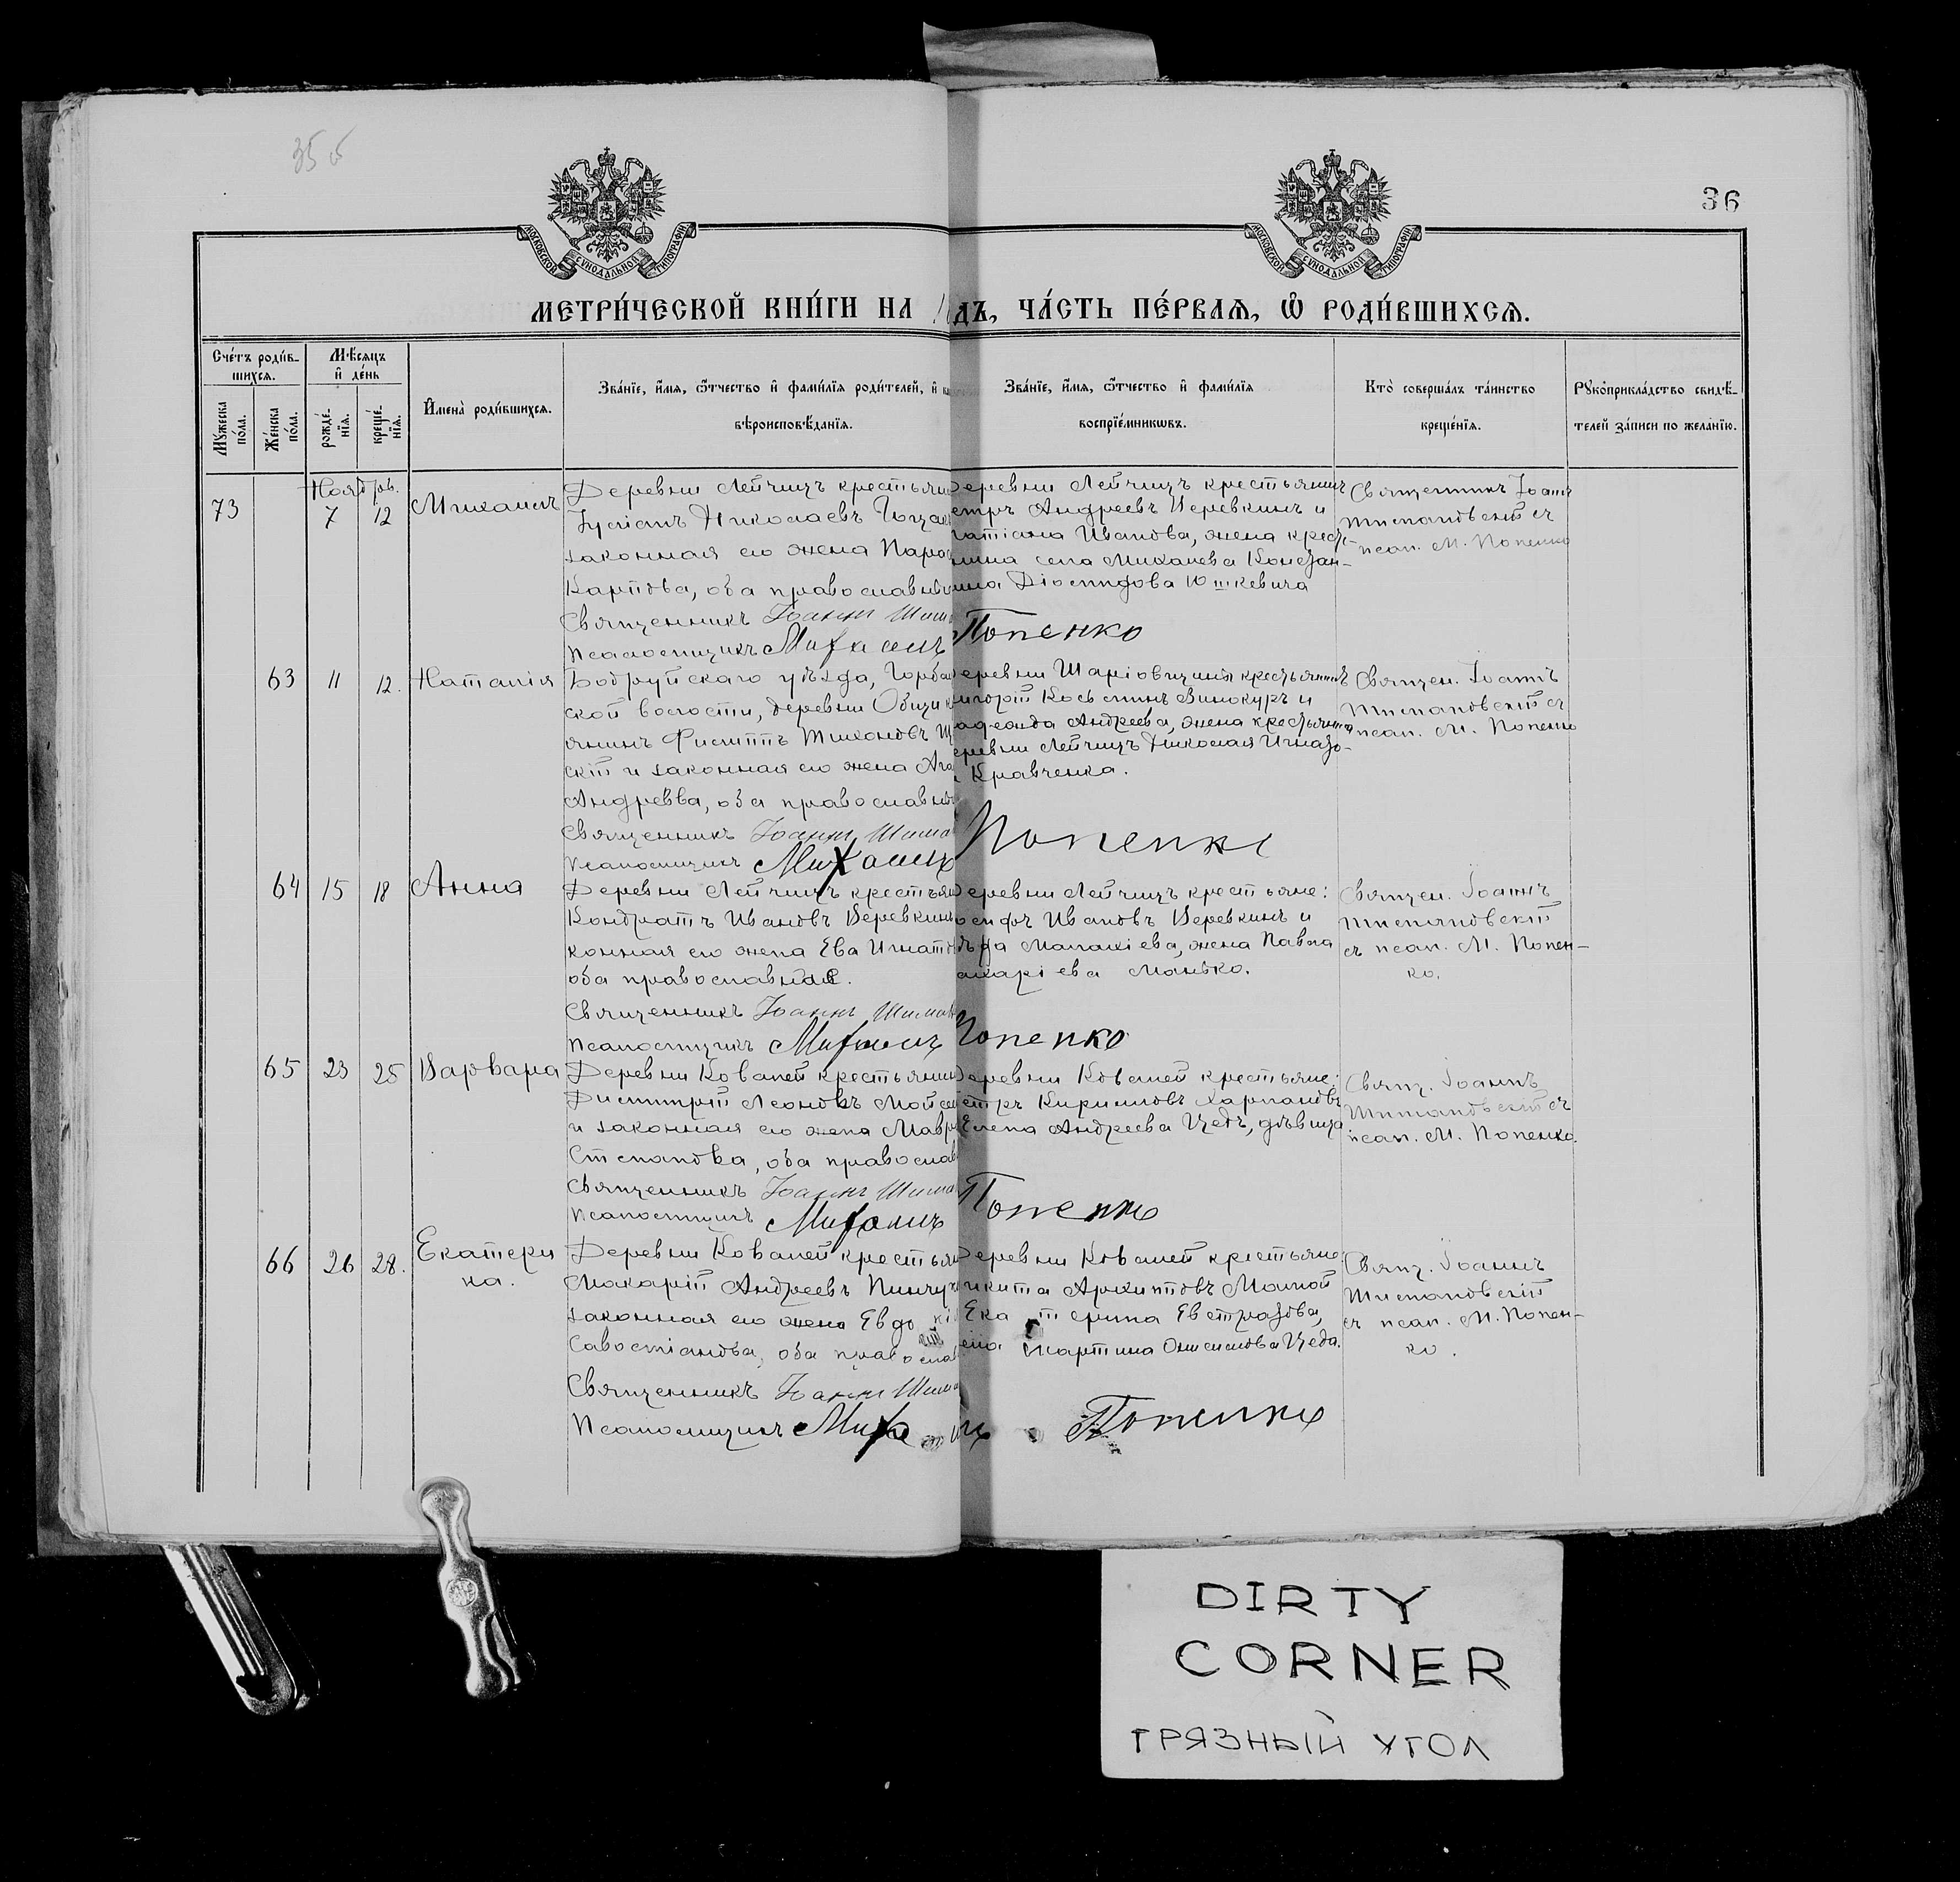 35 об
36
МОСКОВСКОЙ СѴНОДАЛЬНОЙ ТИПОГРАФІИ
МОСКОВСКОЙ СѴНОДАЛЬНОЙ ТИПОГРАФІИ
МЕТРИ́ЧЕСКОЙ КНИ́ГИ НА
ДЪ, ЧА́СТЬ ПЕ́РВАЯ, Ѽ РОДИ́ВШИХСЯ.
Сче́тъ роди́в-
шихся.
Мѣ́сяцъ
и҆ де́нь
Мꙋ́жеска
по́ла.
Же́нска
по́ла.
рожде́-
нїя.
креще́-
нїя.
И҆мена̀ роди́вшихся.
Зва́нїе, и҆́мя, ѻ҆́тчество и҆ фами́лїя роди́телей, и҆
вѣроисповѣ́данїя.
Зва́нїе, и҆́мя, ѻ҆́тчество и҆ фами́лїя
воспрїе́мникѡвъ.
Кто̀ соверша́лъ та́инство
креще́нїя.
Рꙋкоприкла́дство свидѣ́-
телей за́писи по жела́нїю.
73
Ноябрь.
7 12
Михаилъ
Деревни Лейчицъ крестьяни
Николаевъ
законная его жена Парас
Карпова, оба православны
Священникъ Іоаннъ Шима
Псаломщикъ Михаилъ
еревни Лейчицъ крестьянинъ
етръ Андреевъ Веревкинъ и
атіана Иванова, жена кресть-
янина села Михалева Констан-
Юшкевича
Попенко
Священникъ Іоаннъ
Шимановскій съ
псал. М. Попенко
63 11 12. Наталія
Бобруйскаго уѣзда, Горба
ской волости, деревни
янинъ Филиппъ Тихоновъ
скій и законная его жена Ага
Андреева, оба православн
Священникъ Іоаннъ Шима
Псаломщикъ Михаилъ
еревни крестьянинъ
игорій Косьминъ Винокуръ и
Андреева, жена крестьянина
еревни Лейчицъ Николая Игнато-
Кравченка.
Попенко
Священ. Іоаннъ
Шимановскій съ
псал. М. Попенко
64 15 18 Анна
Деревни Лейчицъ крестьян
Кондратъ Ивановъ Веревкинъ
конная его жена Ева Игнато
оба православные.
Священникъ Іоаннъ Шиман
Псаломщикъ Михаилъ
еревни Лейчицъ крестьяне:
осифъ Ивановъ Веревкинъ и
Малахіева, жена Павла
акаріева Манько.
Попенко
Священ. Іоаннъ
Шимановскій
съ псал. М. Попен-
ко.
65 23 25 Варвара
Деревни Ковалей крестьянин
Димитрій Леоновъ Мойсе
и законная его жена Мавр
Степанова, оба православ
Священникъ Іоаннъ Шима
Псаломщикъ Михаилъ
еревни Ковалей крестьяне:
етръ Кирилловъ Харлановъ
Елена Андреева Цедъ, дѣвица
Попенко
Свящ. Іоаннъ
Шимановскій съ
псал. М. Попенко.
66 26 28. Екатери
на.
Деревни Ковалей крестьян
Макарій Андреевъ Пинчук
законная его жена Евдокі
Савостіанова, оба православ
Священникъ Іоаннъ Шима
Псаломщикъ Михаилъ
еревни Ковалей крестьяне:
икита Архиповъ Малой
Екатерина Евстратова,
ена Мартина Онисимова Цеда.
Попенко
Свящ. Іоаннъ
Шимановскій
съ псал. М. Попен-
ко.
DIRTY
CORNER
ГРЯЗНЫЙ УГОЛ